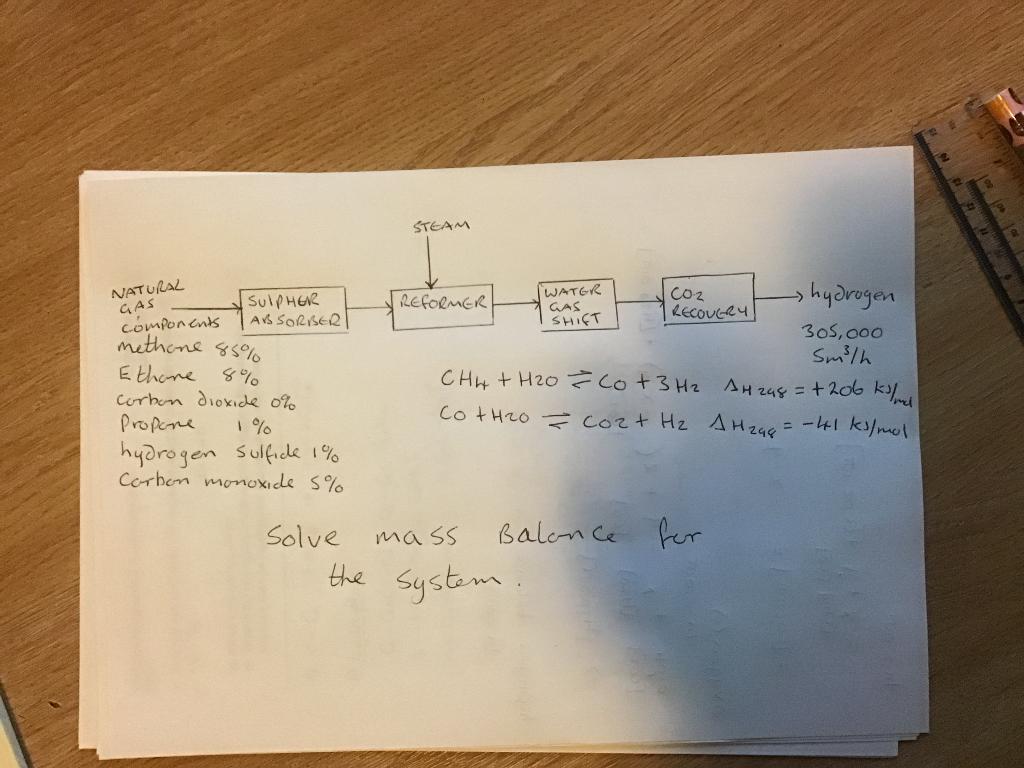 STEAM
NATURAL
GAS
components
SULPHER
ABSORBER
REFORMER
WATER
GAS
SHIFT
CO2
RECOVERY
hydrogen
305,000
Sm³/h
methane 85%
Ethane 8%
carbon dioxide 0%
Propane 1%
hydrogen sulfide 1%
Carbon monoxide 5%
CH4 + H2O ⇌ CO + 3H2 ΔH298 = +206 kJ/mol
CO + H2O ⇌ CO2 + H2 ΔH298 = -41 kJ/mol
Solve mass Balance for
the system.